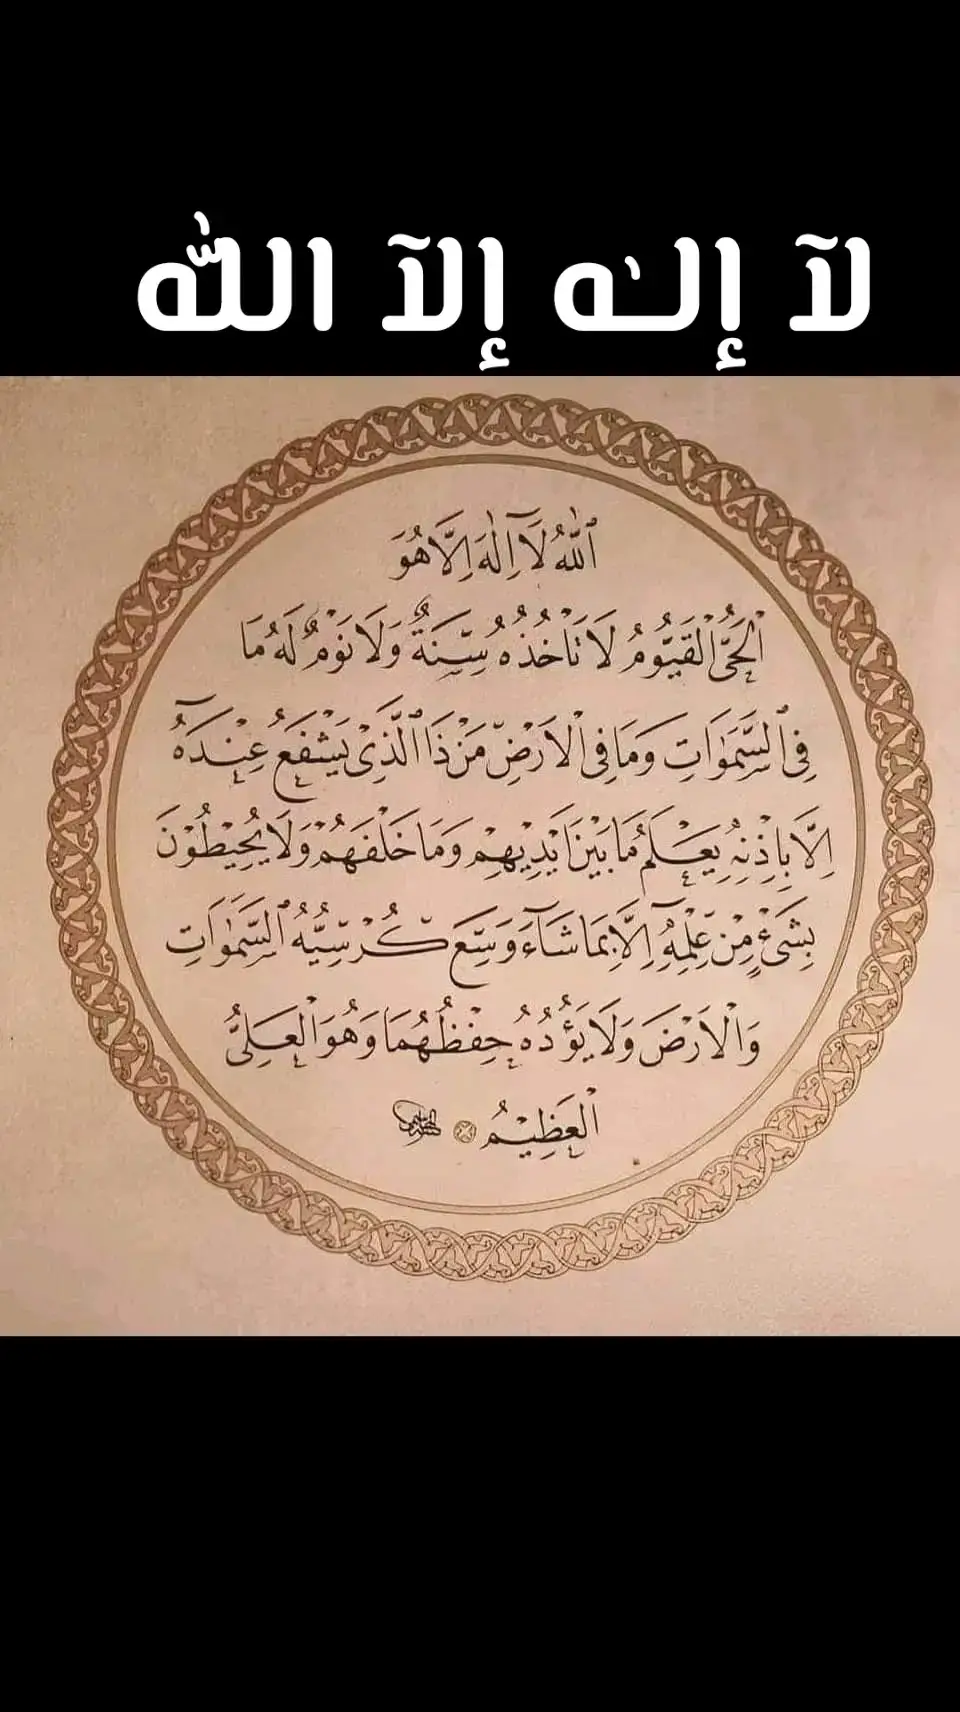 لآ إلـٰه إلآ اللّٰه
ٱللّٰهُ لَآ اِلٰهَ اِلَّا هُوَ
الْحَىُّ الْقَيُّومُ لَا تَأْخُذُهُ سِنَةٌ وَلَا نَوْمٌ لَهُ مَا
فِى ٱلسَّمٰوَاتِ وَمَا فِى الْاَرْضِ مَنْ ذَا الَّذِى يَشْفَعُ عِنْدَهُٓ
اِلَّا بِاِذْنِهِ يَعْلَمُ مَا بَيْنَ اَيْدِيهِمْ وَمَا خَلْفَهُمْ وَلَا يُحِيْطُوْنَ
بِشَىْءٍ مِنْ عِلْمِهِٓ اِلَّا بِمَا شَآءَ وَسِعَ كُرْسِيُّهُ ٱلسَّمٰوَاتِ
وَالْاَرْضَ وَلَا يَؤُدُهُ حِفْظُهُمَا وَهُوَ الْعَلِىُّ
الْعَظِيْمُ